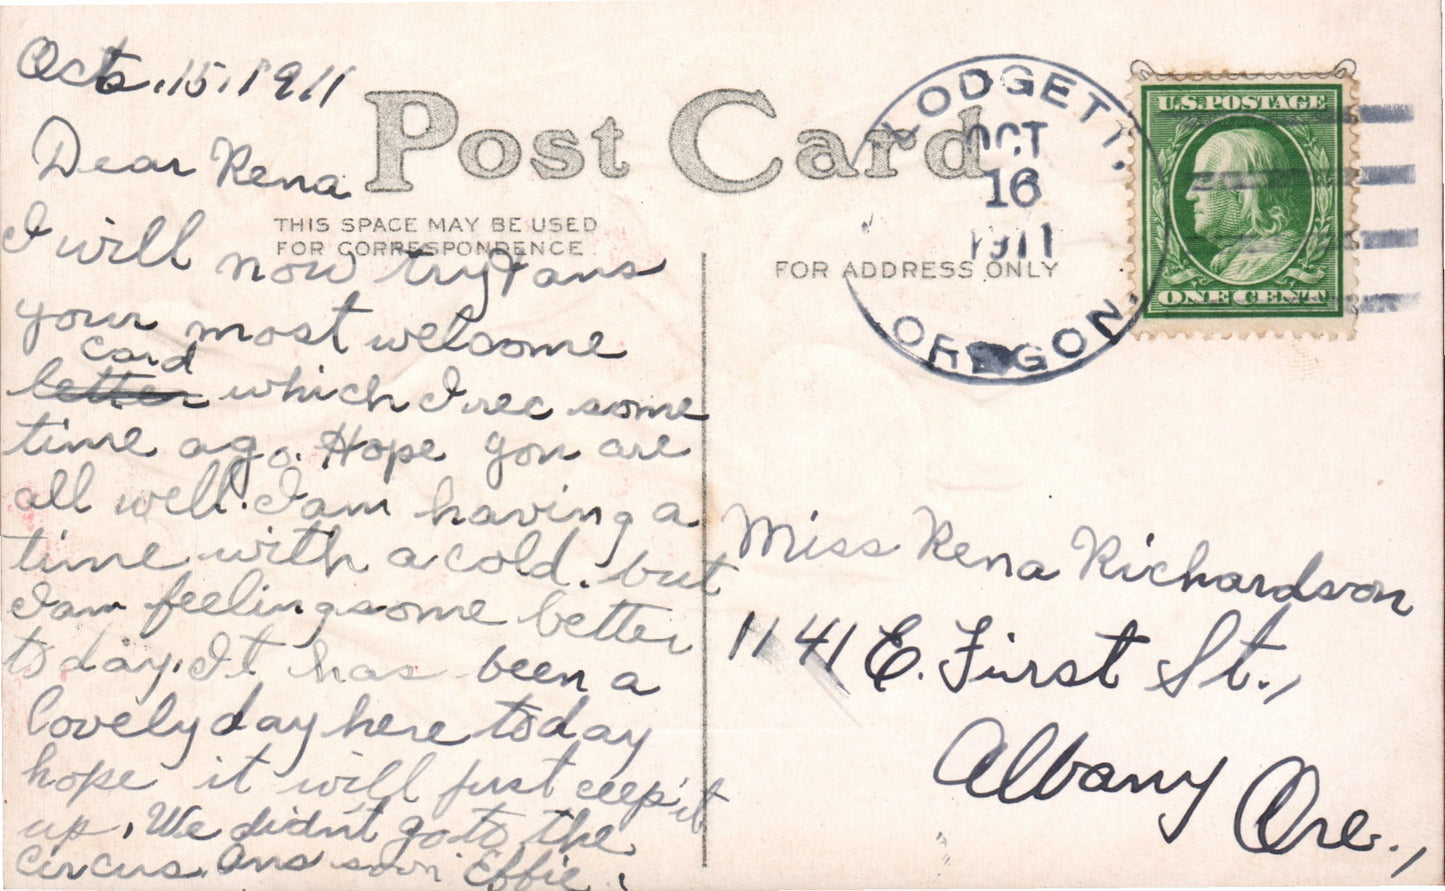 Oct. 15, 1911
Post Card
Dear Rena
THIS SPACE MAY BE USED
FOR CORRESPONDENCE
I will now try & ans
your most welcome
card
letter which I rec some
time ago. Hope you are
all well. I am having a
time with a cold. but
I am feeling some better
to day. It has been a
lovely day here today
hope it will just ceep it
up. We didn't go to the
circus. Ans soon Effie.
FOR ADDRESS ONLY
BLODGETT,
OCT
16
1911
OREGON.
U.S. POSTAGE
ONE CENT
Miss Rena Richardson
1141 E. First St.,
Albany Ore.,